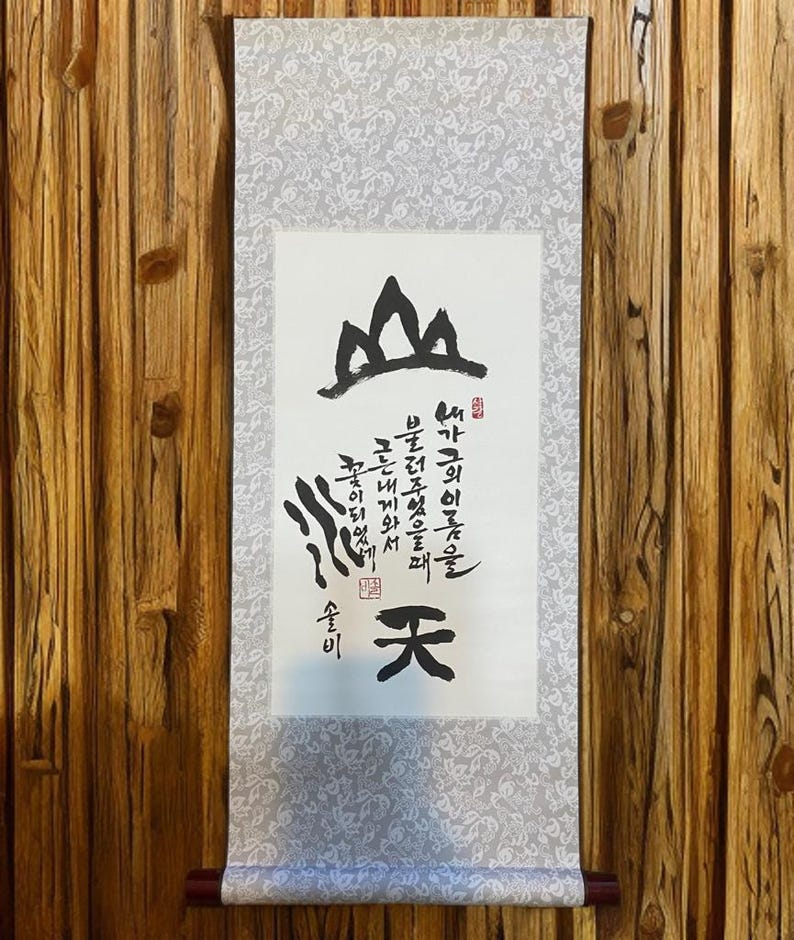 山
내가 그의 이름을
불러주었을때
그는 내게 와서
꽃이 되었네
水
솔비
솔비
天